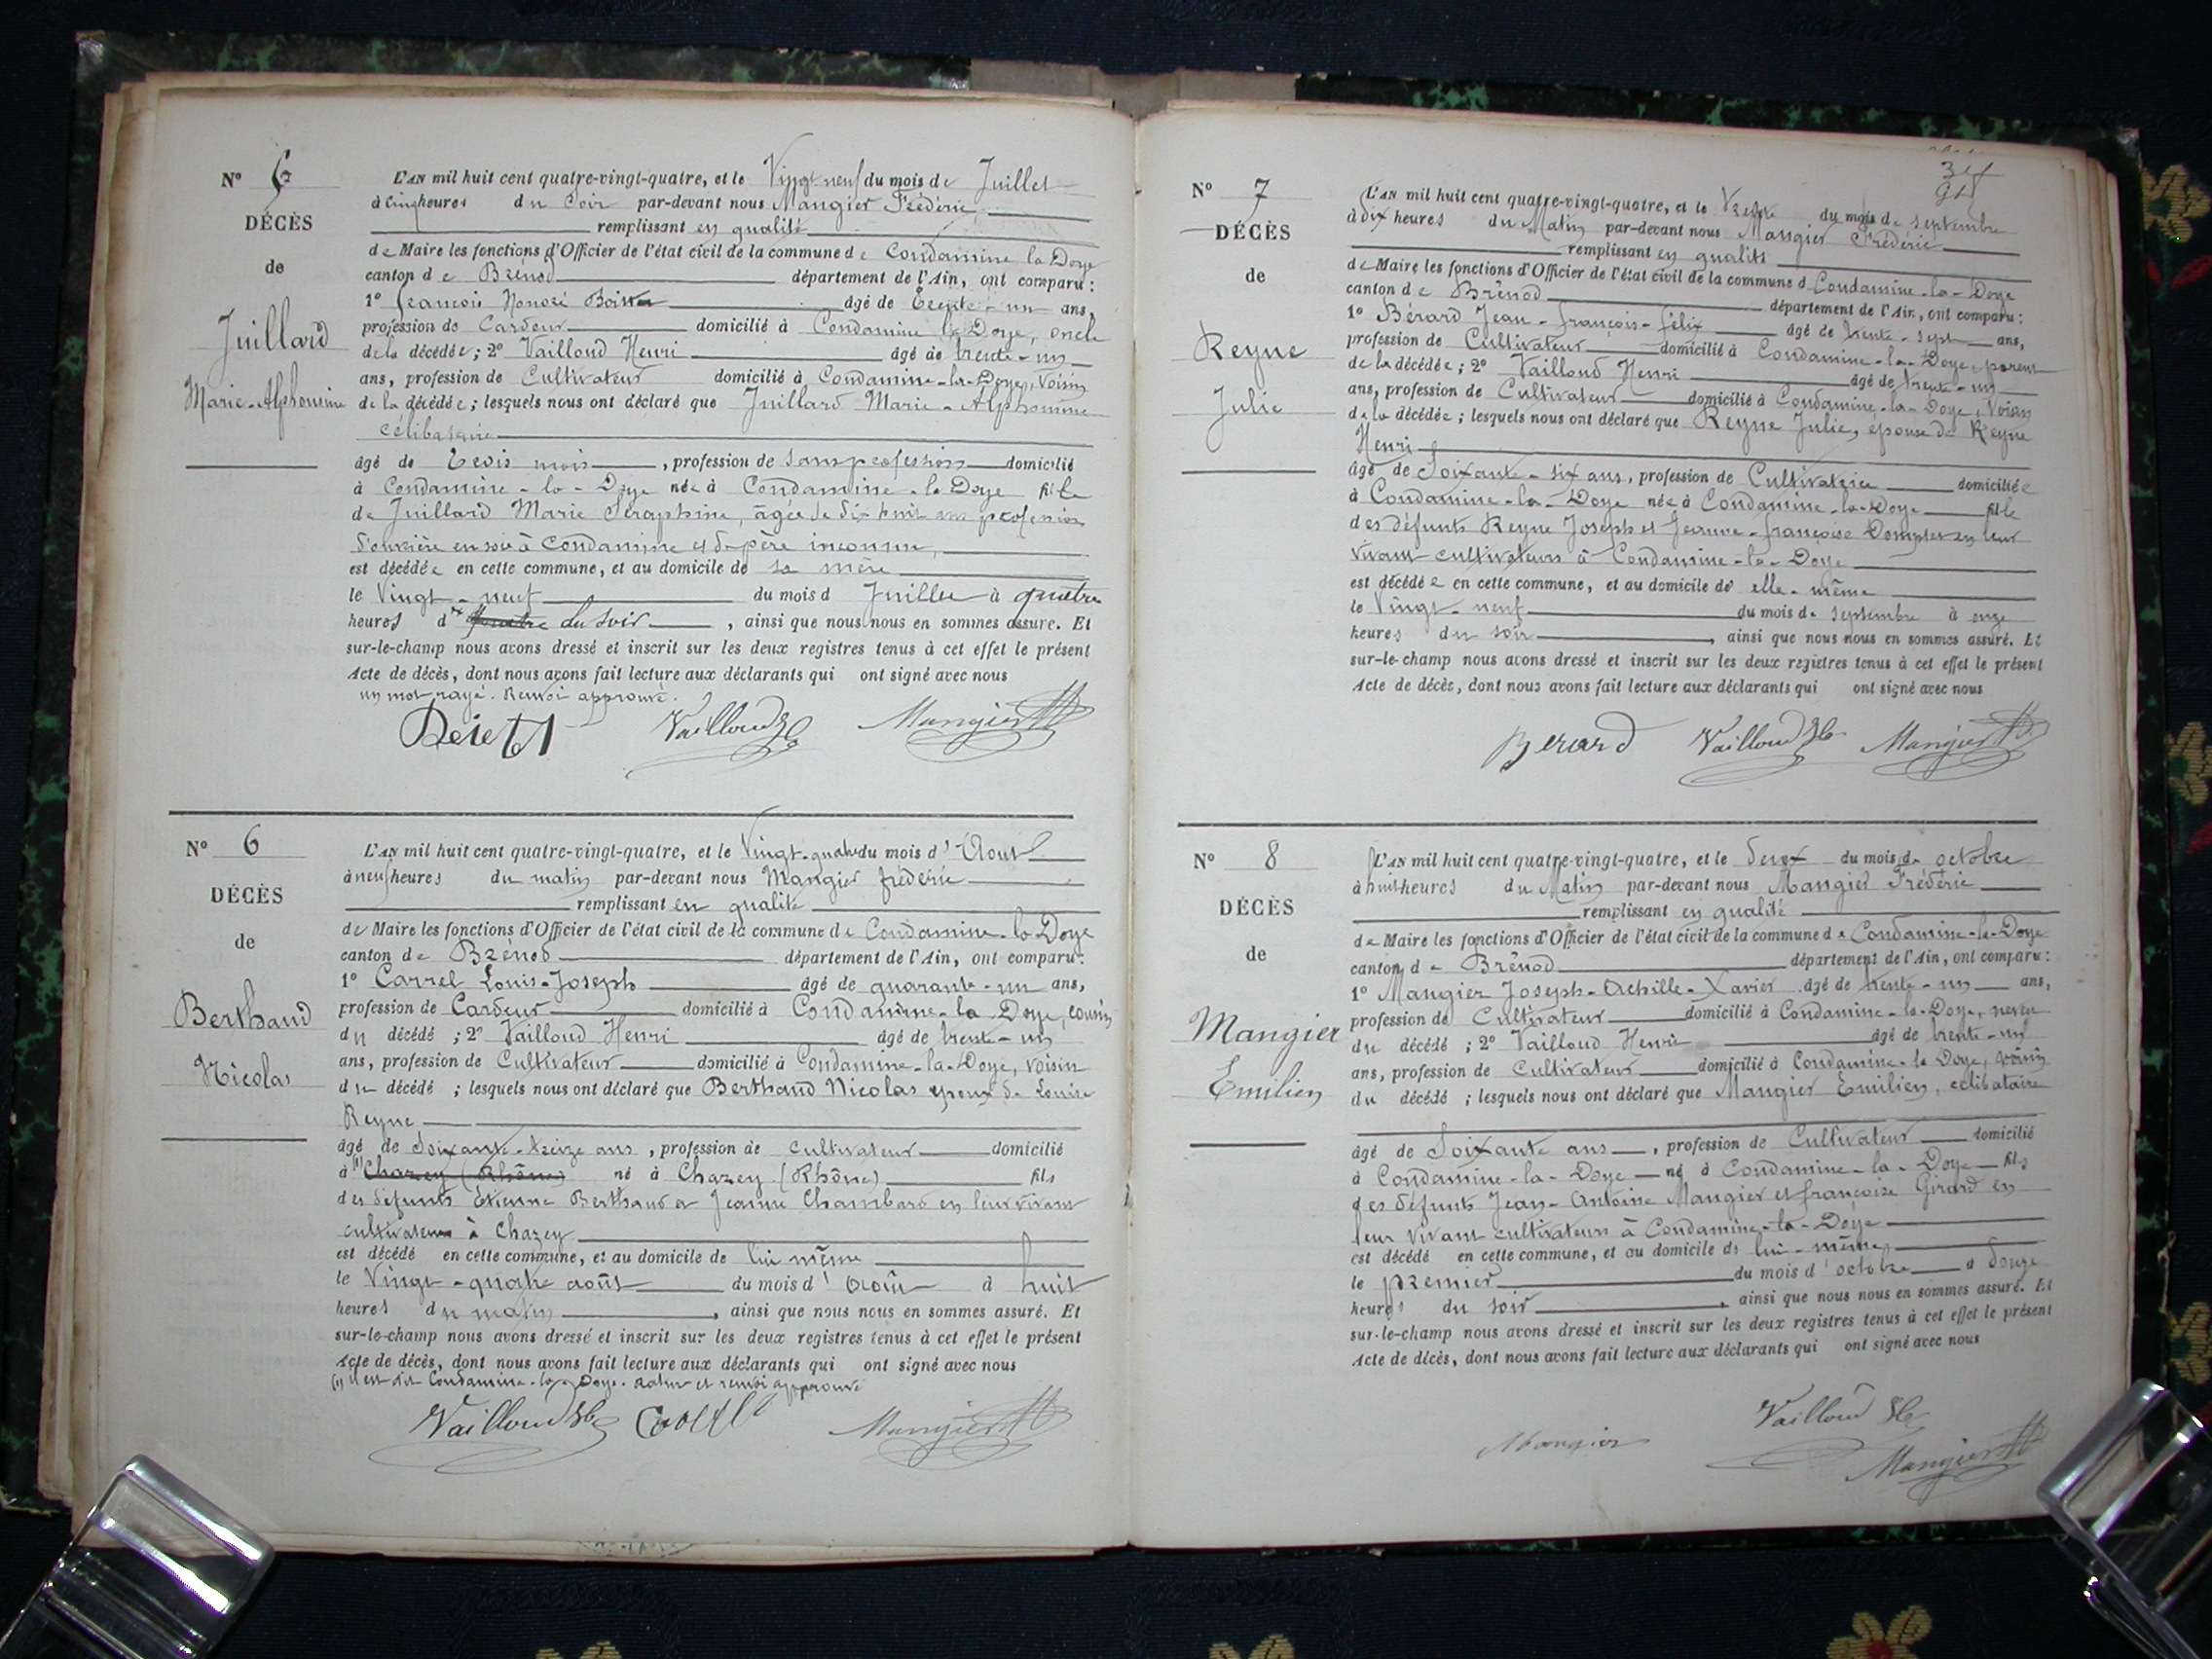 N° 5
DÉCÈS
de
Juillard
Marie-Alphonsine
L'AN mil huit cent quatre-vingt-quatre, et le Vingt neuf du mois de Juillet
à cinq heures du soir par-devant nous Mangier Frédéric
remplissant en qualité
de Maire les fonctions d'Officier de l'état civil de la commune de Condamine la Doye
canton de Brénod département de l'Ain, ont comparu :
1° François Honoré agé de trente-un ans,
profession de Cardeur domicilié à Condamine la Doye, oncle
de la décédée ; 2° Vailloud Henri agé de trente-un
ans, profession de Cultivateur domicilié à Condamine-la-Doye, voisin
de la décédée ; lesquels nous ont déclaré que Juillard Marie-Alphonsine
célibataire
âgé de trois mois, profession de sans profession domicilié
à Condamine-la-Doye née à Condamine-la Doye fille
de Juillard Marie Séraphine, âgée de dix huit ans profession
d'ouvrière en soie à Condamine et de père inconnu,
est décédée en cette commune, et au domicile de sa mère
le Vingt-neuf du mois d Juillet à quatre
heures d quatre du soir, ainsi que nous nous en sommes assuré. Et
sur-le-champ nous avons dressé et inscrit sur les deux registres tenus à cet effet le présent
Acte de décès, dont nous avons fait lecture aux déclarants qui ont signé avec nous
un mot rayé. Renvoi approuvé.
Vailloud H Mangier
N° 6
DÉCÈS
de
Berthaud
Nicolas
L'AN mil huit cent quatre-vingt-quatre, et le Vingt-quatre du mois d'Août
à neuf heures du matin par-devant nous Mangier frédéric
remplissant en qualité
de Maire les fonctions d'Officier de l'état civil de la commune de Condamine-la Doye
canton de Brénod département de l'Ain, ont comparu :
1° Carrel Louis-Joseph âgé de quarante-un ans,
profession de Cardeur domicilié à Condamine-la Doye, cousin
du décédé ; 2° Vailloud Henri âgé de trente-un
ans, profession de Cultivateur domicilié à Condamine-la-Doye, voisin
du décédé ; lesquels nous ont déclaré que Berthaud Nicolas époux de Louise
Reyne
âgé de Soixante-treize ans, profession de cultivateur domicilié
à (1) Chazey (Rhône) né à Chazey (Rhône) fils
des défunts Étienne Berthaud et Jeanne Chambard en leur vivant
cultivateurs à Chazey
est décédé en cette commune, et au domicile de lui même
le Vingt-quatre août du mois d'Août à huit
heures du matin, ainsi que nous nous en sommes assuré. Et
sur-le-champ nous avons dressé et inscrit sur les deux registres tenus à cet effet le présent
Acte de décès, dont nous avons fait lecture aux déclarants qui ont signé avec nous
(1) il est dit Condamine-la-Doye. rature et renvoi approuvé
Vailloud H Mangier
N° 7
DÉCÈS
de
Reyne
Julie
L'AN mil huit cent quatre-vingt-quatre, et le Trente du mois de septembre
à dix heures du Matin par-devant nous Mangier Frédéric
remplissant en qualité
de Maire les fonctions d'Officier de l'état civil de la commune d Condamine-la-Doye
canton de Brénod département de l'Ain, ont comparu :
1° Bérard Jean-françois-félix âgé de trente-sept ans,
profession de Cultivateur domicilié à Condamine-la-Doye, parent
de la décédée ; 2° Vailloud Henri âgé de trente-un
ans, profession de Cultivateur domicilié à Condamine-la-Doye, Voisin
de la décédée ; lesquels nous ont déclaré que Reyne Julie, épouse de Reyne
Henri
âgé de Soixante-six ans, profession de Cultivatrice domiciliée
à Condamine-la-Doye née à Condamine-la-Doye fille
des défunts Reyne Joseph et Jeanne-françoise en leur
vivant cultivateurs à Condamine-la-Doye
est décédée en cette commune, et au domicile de elle-même
le Vingt-neuf du mois de septembre à onze
heures du soir, ainsi que nous nous en sommes assuré. Et
sur-le-champ nous avons dressé et inscrit sur les deux registres tenus à cet effet le présent
Acte de décès, dont nous avons fait lecture aux déclarants qui ont signé avec nous
Berard Vailloud H Mangier
N° 8
DÉCÈS
de
Mangier
Emilien
L'AN mil huit cent quatre-vingt-quatre, et le deux du mois de octobre
à huit heures du Matin par-devant nous Mangier Frédéric
remplissant en qualité
de Maire les fonctions d'Officier de l'état civil de la commune de Condamine-la-Doye
canton de Brénod département de l'Ain, ont comparu :
1° Mangier Joseph-Achille-Xavier âgé de trente-un ans,
profession de Cultivateur domicilié à Condamine-la-Doye, neveu
du décédé ; 2° Vailloud Henri âgé de trente-un
ans, profession de Cultivateur domicilié à Condamine-la Doye, voisin
du décédé ; lesquels nous ont déclaré que Mangier Emilien, célibataire
âgé de Soixante ans, profession de Cultivateur domicilié
à Condamine-la-Doye né à Condamine-la-Doye fils
des défunts Jean-Antoine Mangier et françoise Girard en
leur vivant cultivateurs à Condamine-la-Doye
est décédé en cette commune, et au domicile de lui-même,
le premier du mois d'octobre à douze
heures du soir, ainsi que nous nous en sommes assuré. Et
sur-le-champ nous avons dressé et inscrit sur les deux registres tenus à cet effet le présent
Acte de décès, dont nous avons fait lecture aux déclarants qui ont signé avec nous
Vailloud H
Mangier Mangier